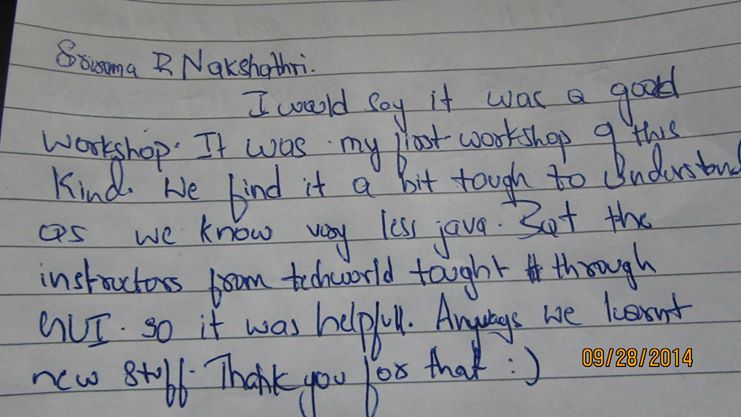 Sowoma R Nakshathri.
I would say it was a good
workshop. It was my first workshop of this
kind. We find it a bit tough to understand
as we know very less java. But the
instructors from techworld taught through
GUI. so it was helpfull. Anyways we learnt
new stuff. Thank you for that :)
09/28/2014